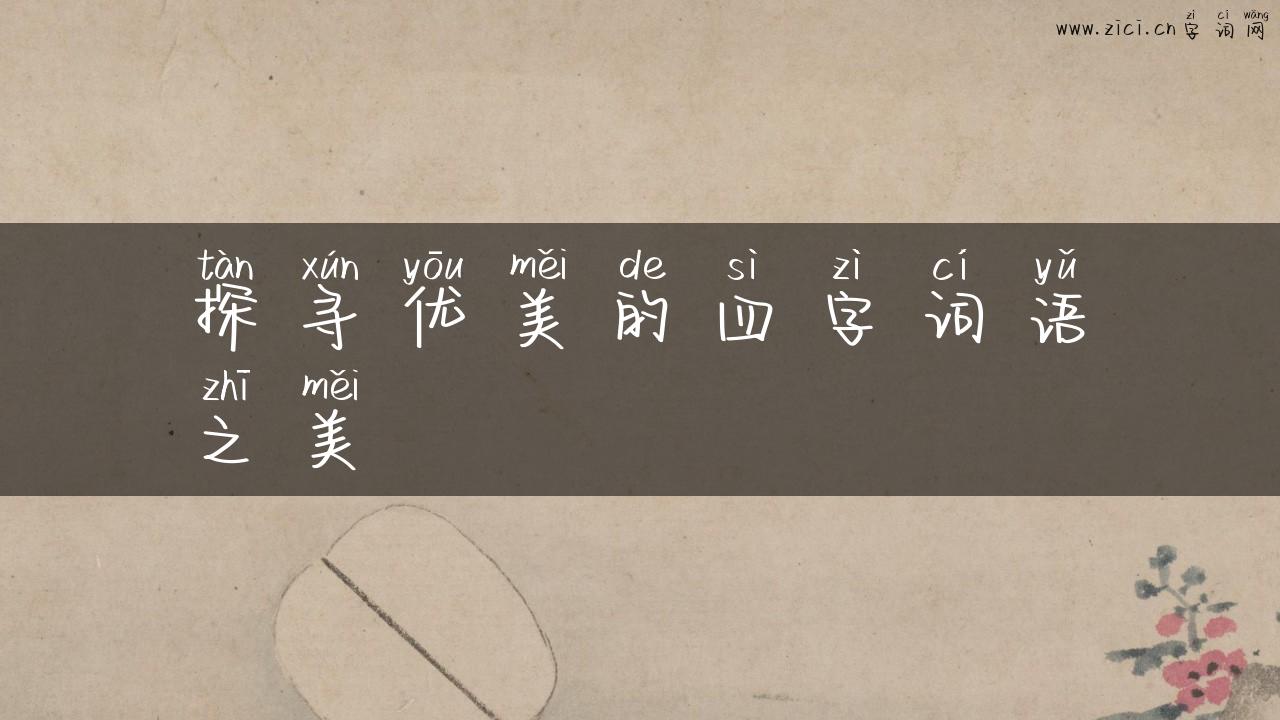 zì cí wǎng
www.zici.cn字词网
tàn xún yōu měi de sì zì cí yǔ
探寻优美的四字词语
zhī měi
之美